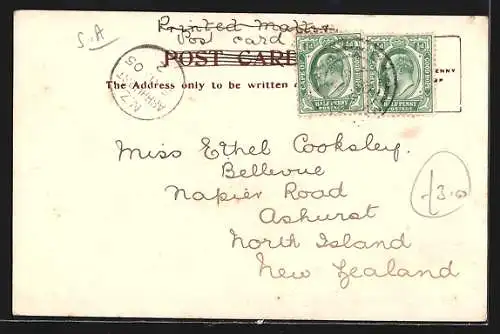 S.A
Printed Matter
Post card
POST CARD
The Address only to be written
NZ
ASHHURST
05
CAPE OF GOOD HOPE
HALF PENNY
POSTAGE
HALF PENNY
POSTAGE
ENNY
Miss Ethel Cooksley.
Bellevue
Napier Road
Ashurst
North Island
New Zealand